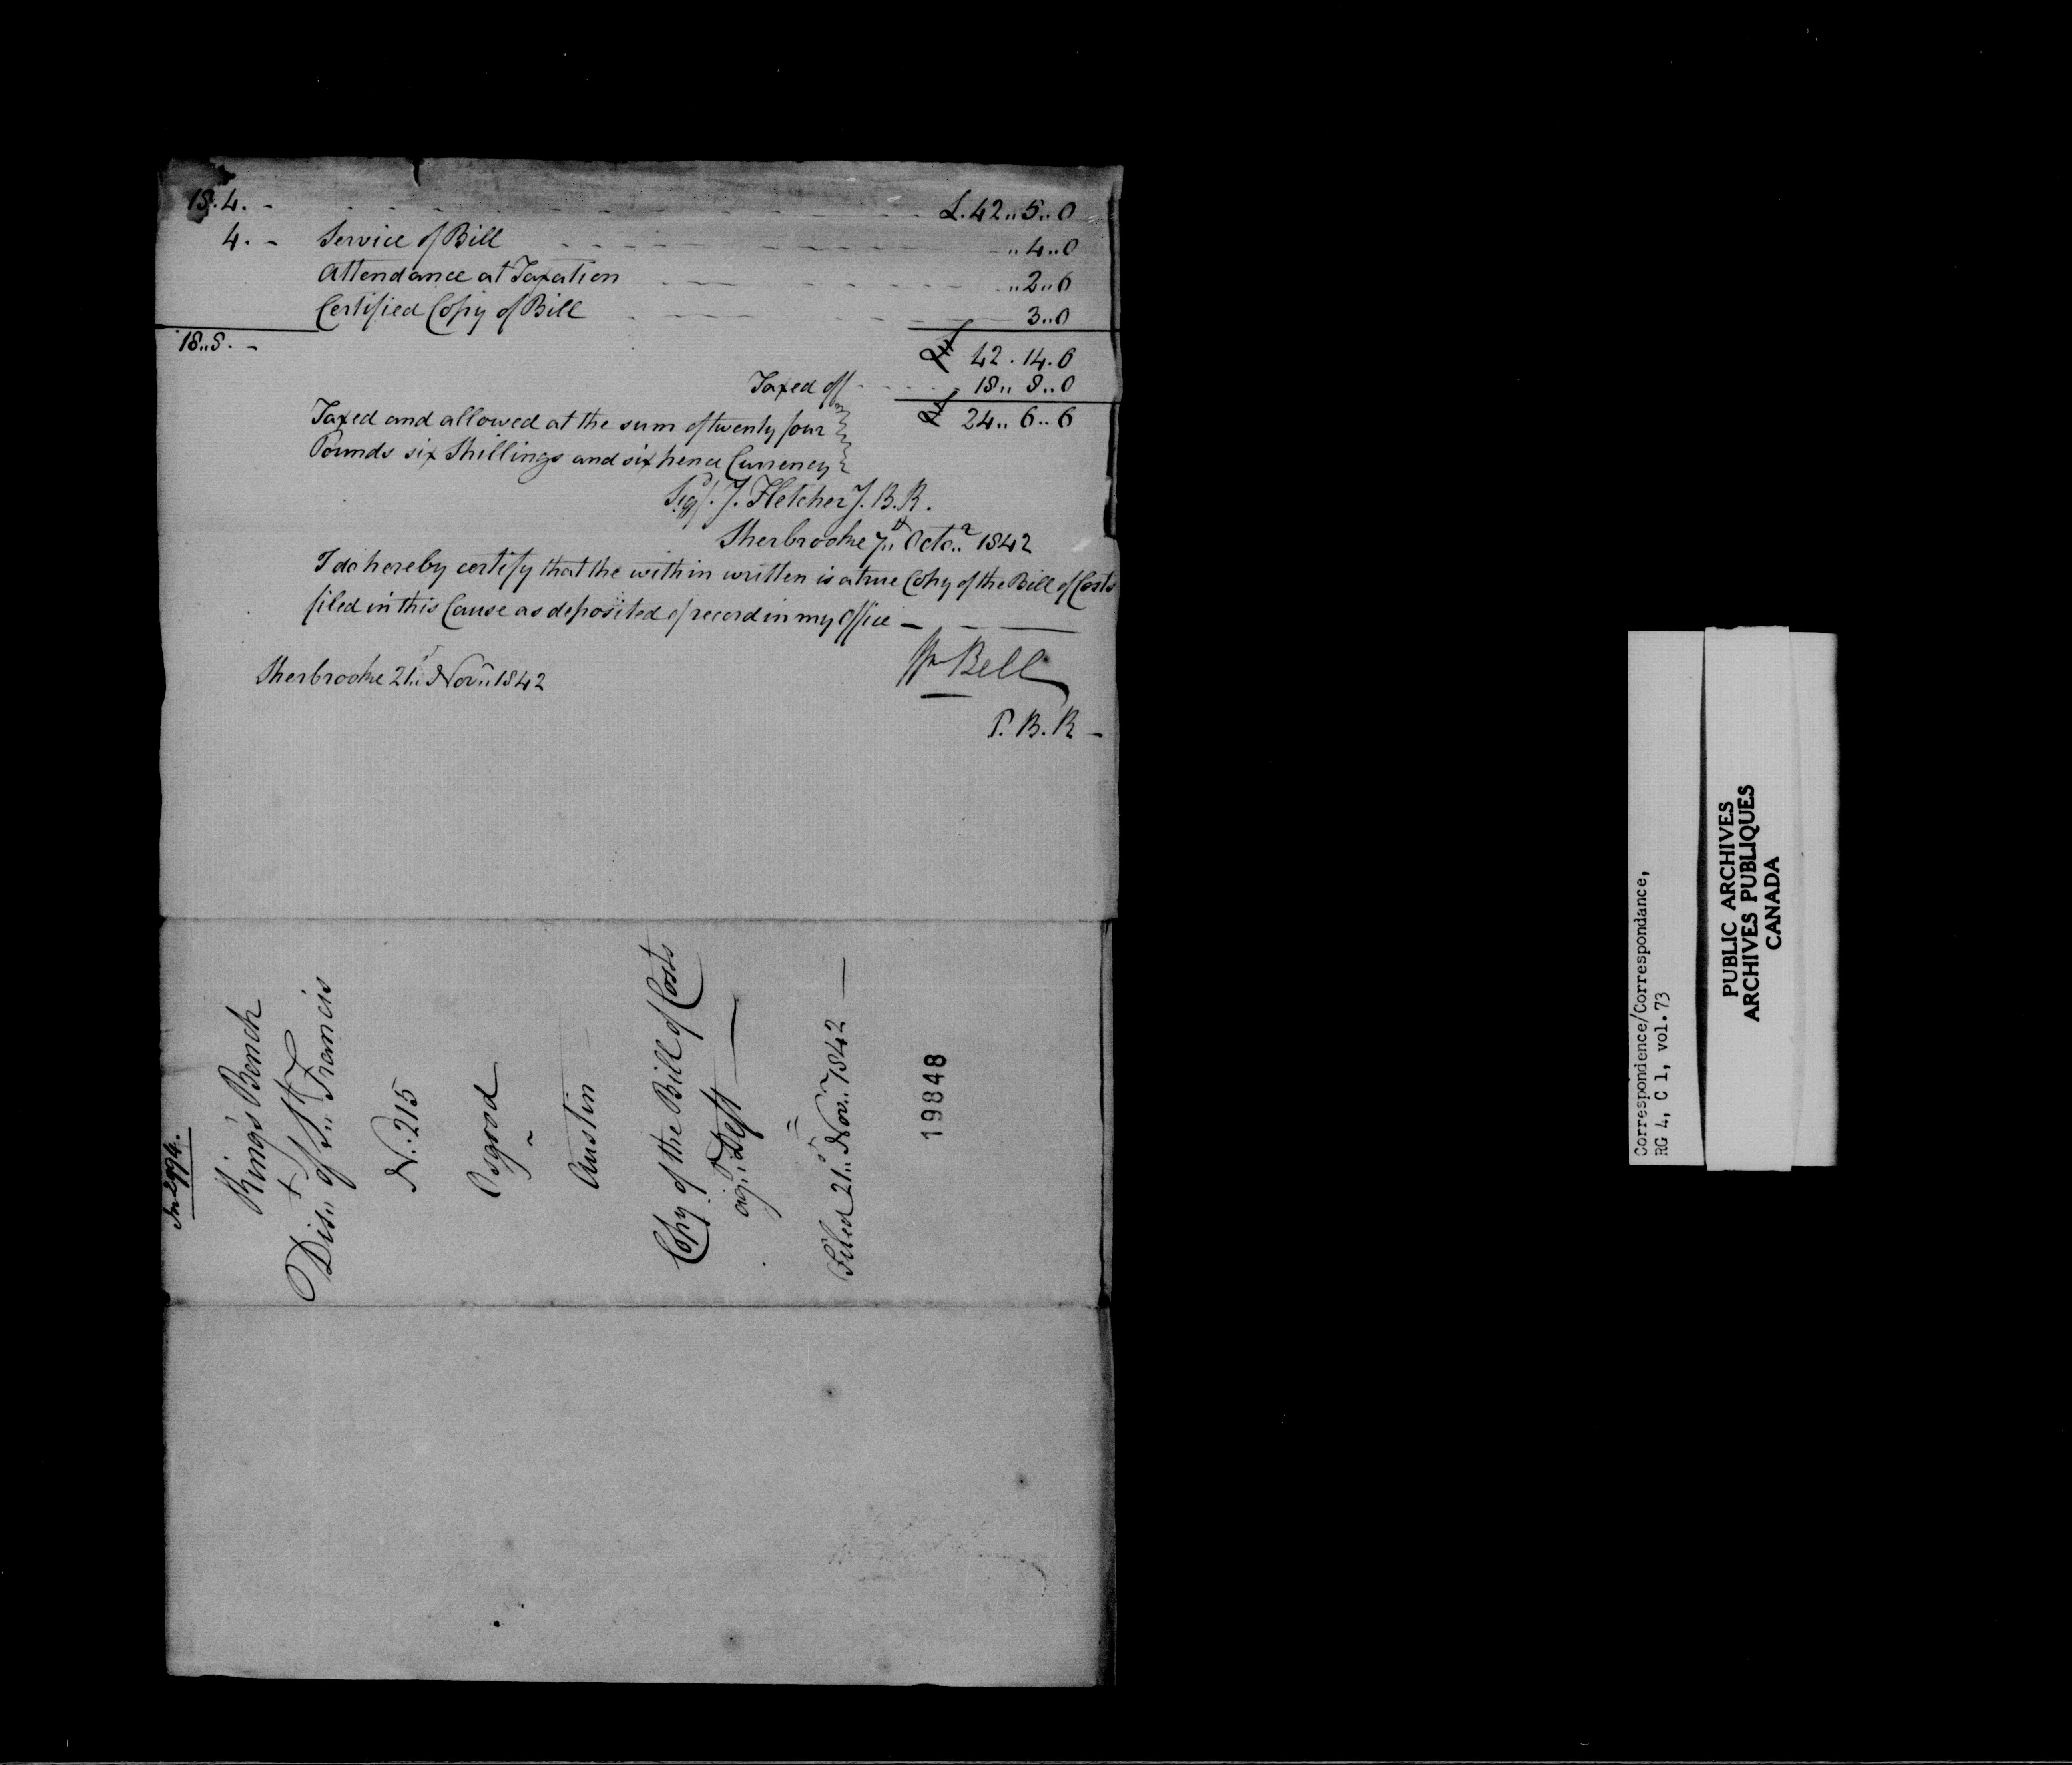 18.4. - L.42..5..0
4. - Service of Bill - ..4..0
Attendance at Taxation ..2..6
Certified Copy of Bill 3..0
18..8. - 42.14.6
Taxed off - 18..8..0
Taxed and allowed at the sum of twenty four 24..6..6
Pounds six Shillings and six pence Currency
Sigd/. J. Fletcher J.B.R.
Sherbrooke 7th Octor 1842
I do hereby certify that the within written is a true Copy of the Bill of Costs
filed in this Cause as deposited of record in my Office -
Sherbrooke 21st Novr 1842
Bell
P.B.R -
In 2994.
King's Bench
Dist of St Francis
N: 215
Osgood
~
Austin
Copy of the Bill of Costs
agt Deft
Filed 21st Novr 1842 -
19848
Correspondence/Correspondance,
RG 4, C 1, vol.73
PUBLIC ARCHIVES
ARCHIVES PUBLIQUES
CANADA